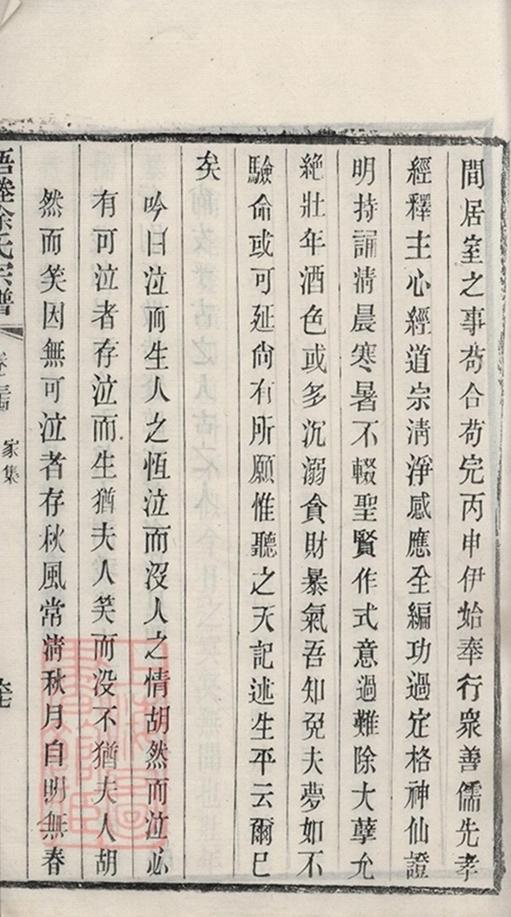 間居室之事苟合苟完丙申伊始奉行衆善儒先孝
經釋主心經道宗淸淨感應全編功過定格神仙證
明持誦淸晨寒暑不輟聖賢作式意過難除大孽允
絶壯年酒色或多沉溺貪財暴氣吾知免夫夢如不
驗命或可延尙有所願惟聽之天記述生平云爾已
矣
吟曰泣而生人之恆泣而沒人之情胡然而泣必
有可泣者存泣而生猶夫人笑而没不猶夫人胡
然而笑因無可泣者存秋風常淸秋月自明無春
梧塍徐氏宗譜
家集